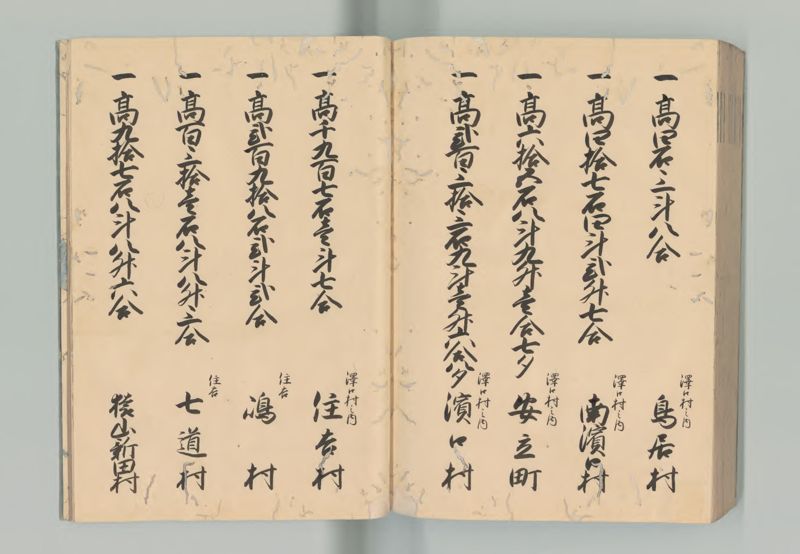 一 高四石三斗八合 澤口村之内 鳥居村
一 高四拾七石四斗弐升七合 澤口村之内 南濱口村
一 高六拾六石八斗九升壱合七夕 澤口村之内 安立町
一 高弐百三拾三石九斗壱升六合八夕 澤口村之内 濱口村
一 高千九百七石壱斗七合 澤口村之内 住吉村
一 高弐百九拾八石弐斗弐合 住吉 嶋村
一 高百三拾壱石八斗八升三合 住吉 七道村
一 高九拾七石八斗八升六合 山新田村